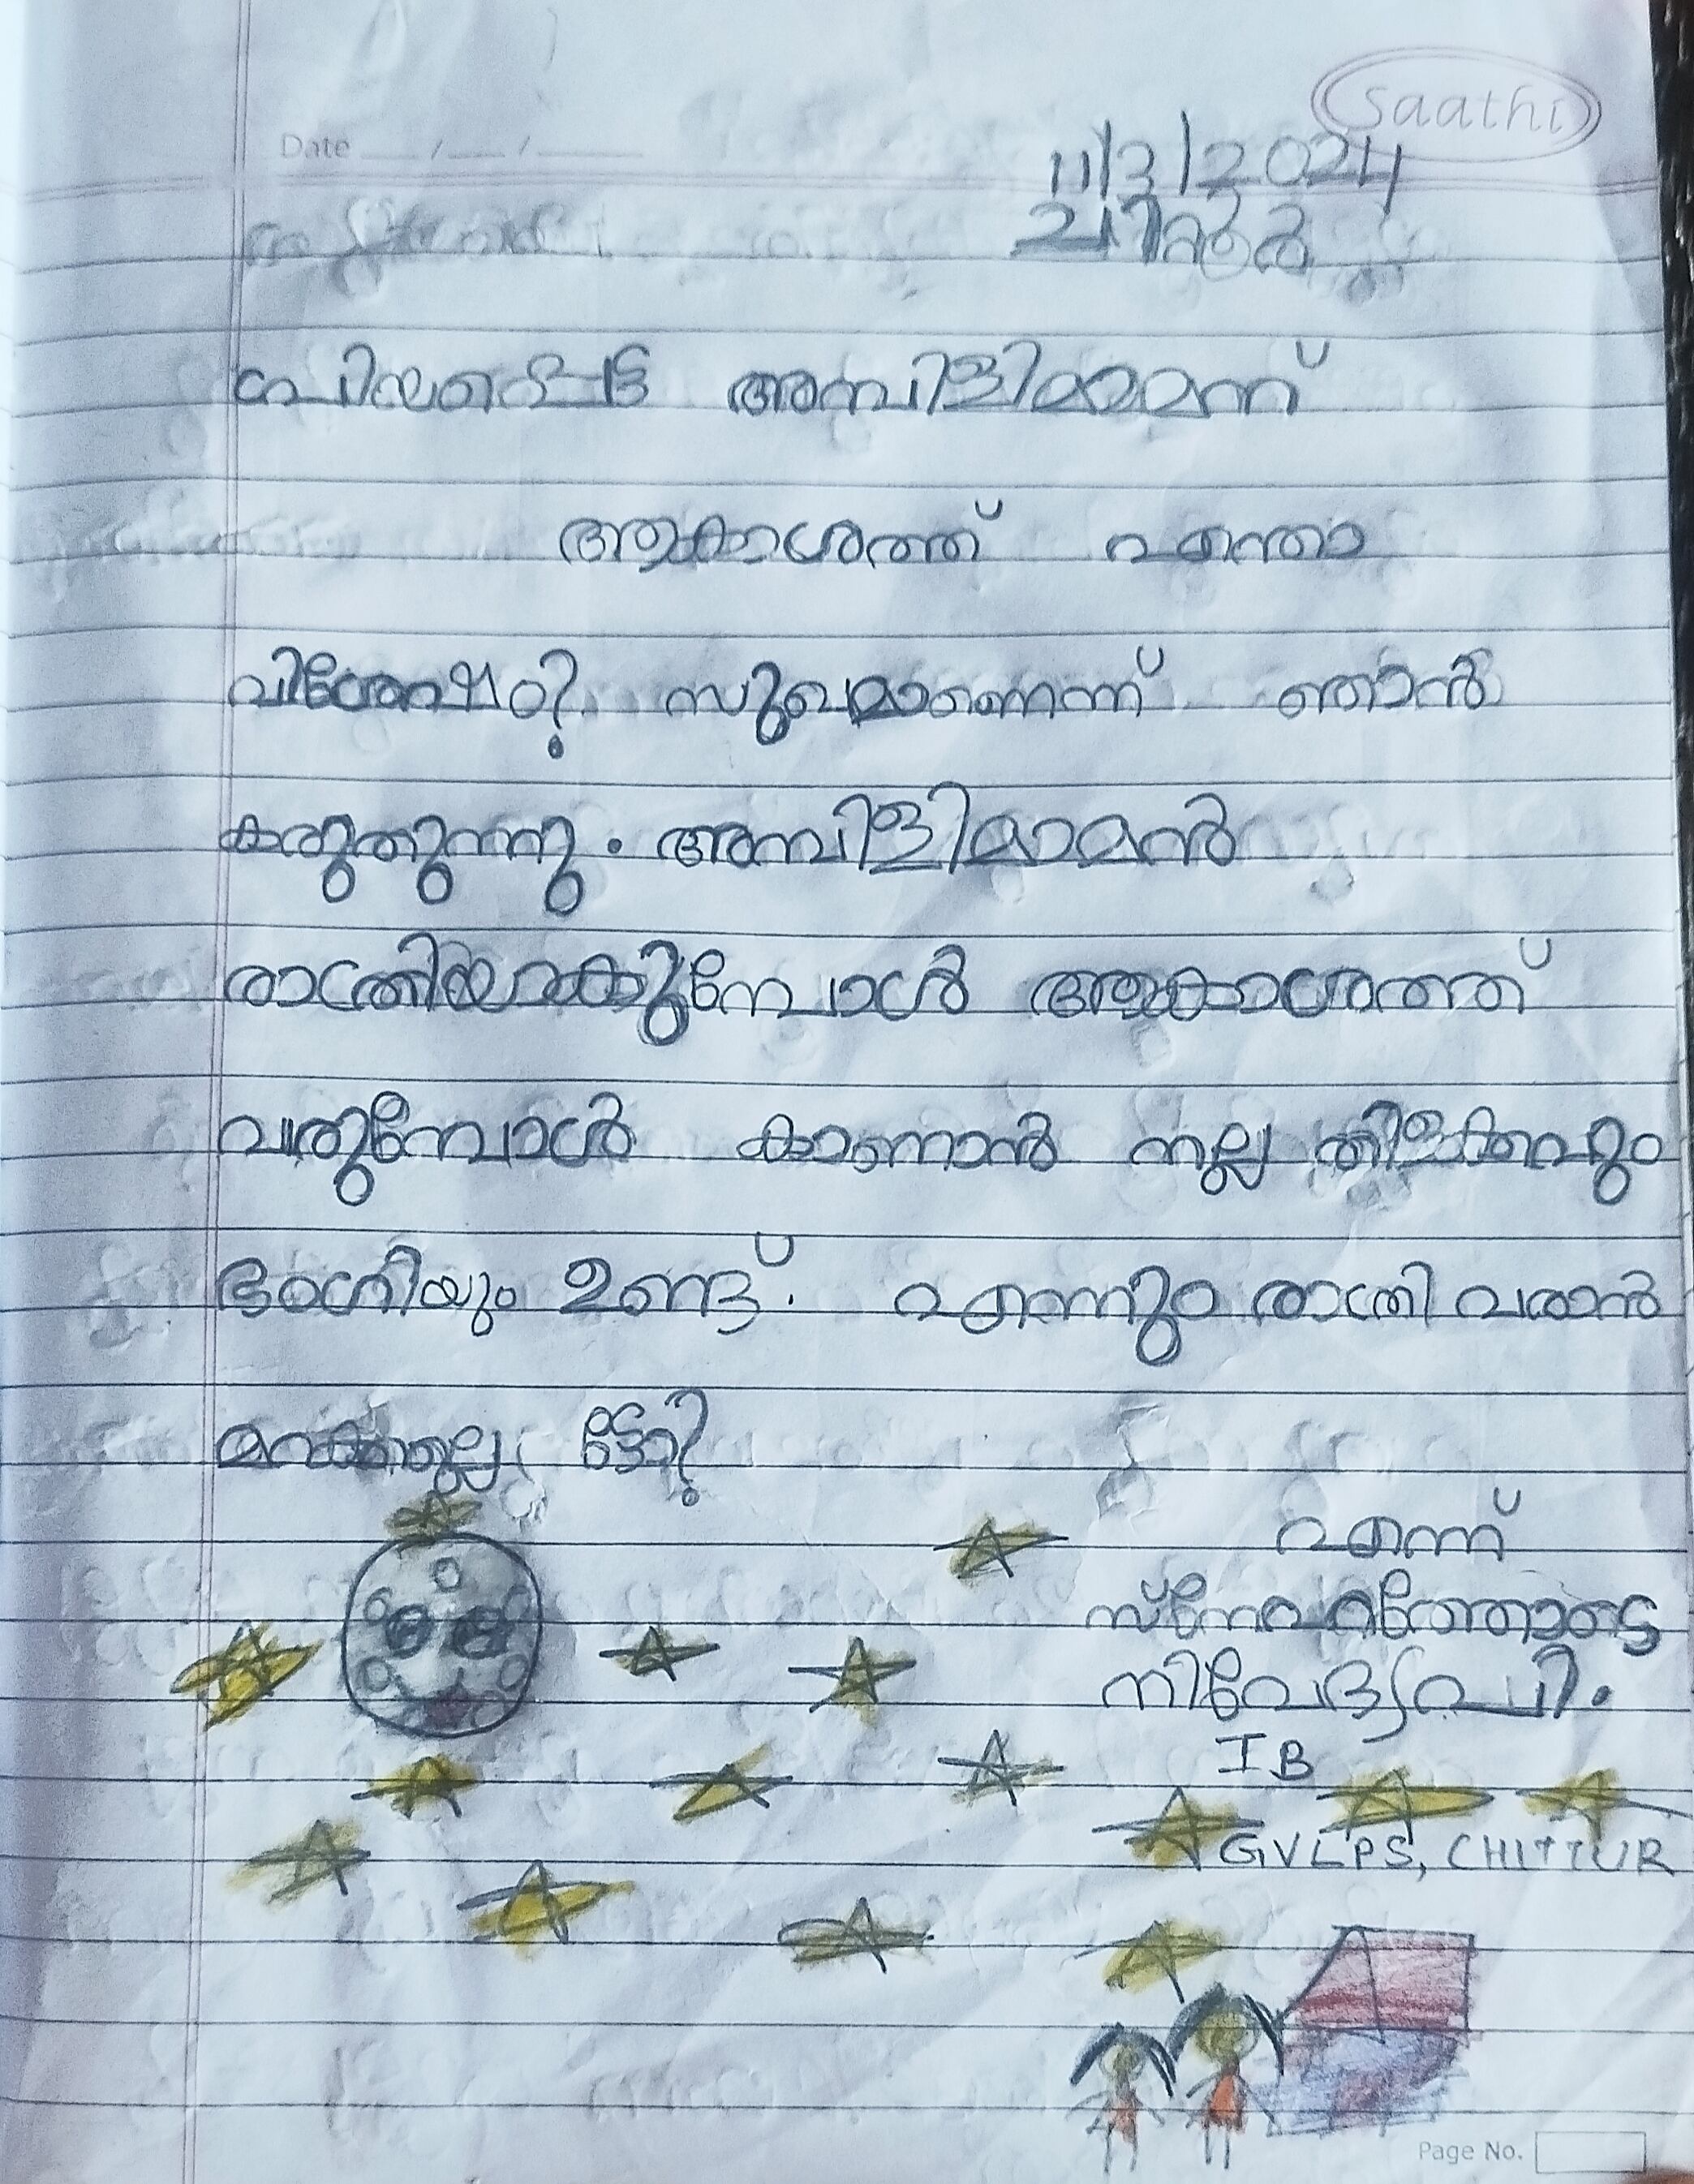 Saathi
Date __/__/____
11/3/2024
ചിറ്റൂർ
പ്രിയപ്പെട്ട അമ്പിളിമാമന്
ആകാശത്ത് എന്താ
വിശേഷം? സുഖമാണെന്ന് ഞാൻ
കരുതുന്നു. അമ്പിളിമാമൻ
രാത്രിയാകുമ്പോൾ ആകാശത്ത്
വരുമ്പോൾ കാണാൻ നല്ല തിളക്കവും
ഭംഗിയും ഉണ്ട്. എന്നും രാത്രി വരാൻ
മറക്കല്ലേ ട്ടോ?
എന്ന്
സ്നേഹത്തോടെ
നിവേദ്യ എ പി.
I B
GVLPS, CHITTUR
Page No.